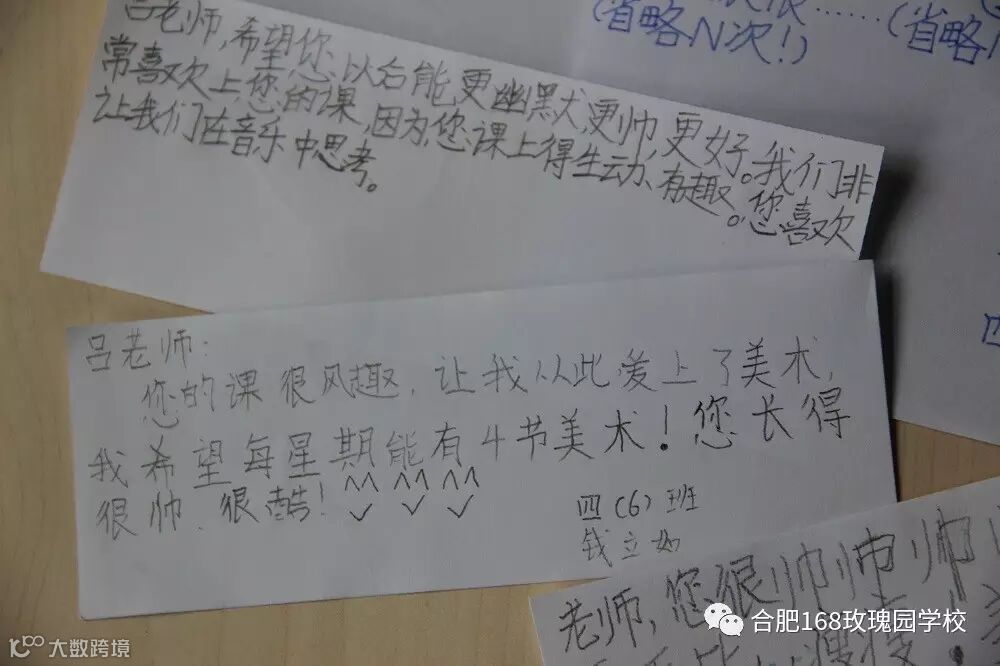 吕老师,希望您以后能更幽默,更帅,更好。我们非
常喜欢上您的课,因为,您课上得生动、有趣。您喜欢
让我们在音乐中思考。
(省略N次!)
(省略
吕老师:
您的课很风趣,让我从此爱上了美术,
我希望每星期能有4节美术!您长得
很帅、很酷! ^^ ^^ ^^
四(6)班
老师,您很帅帅帅
合肥168玫瑰园学校
大数跨境